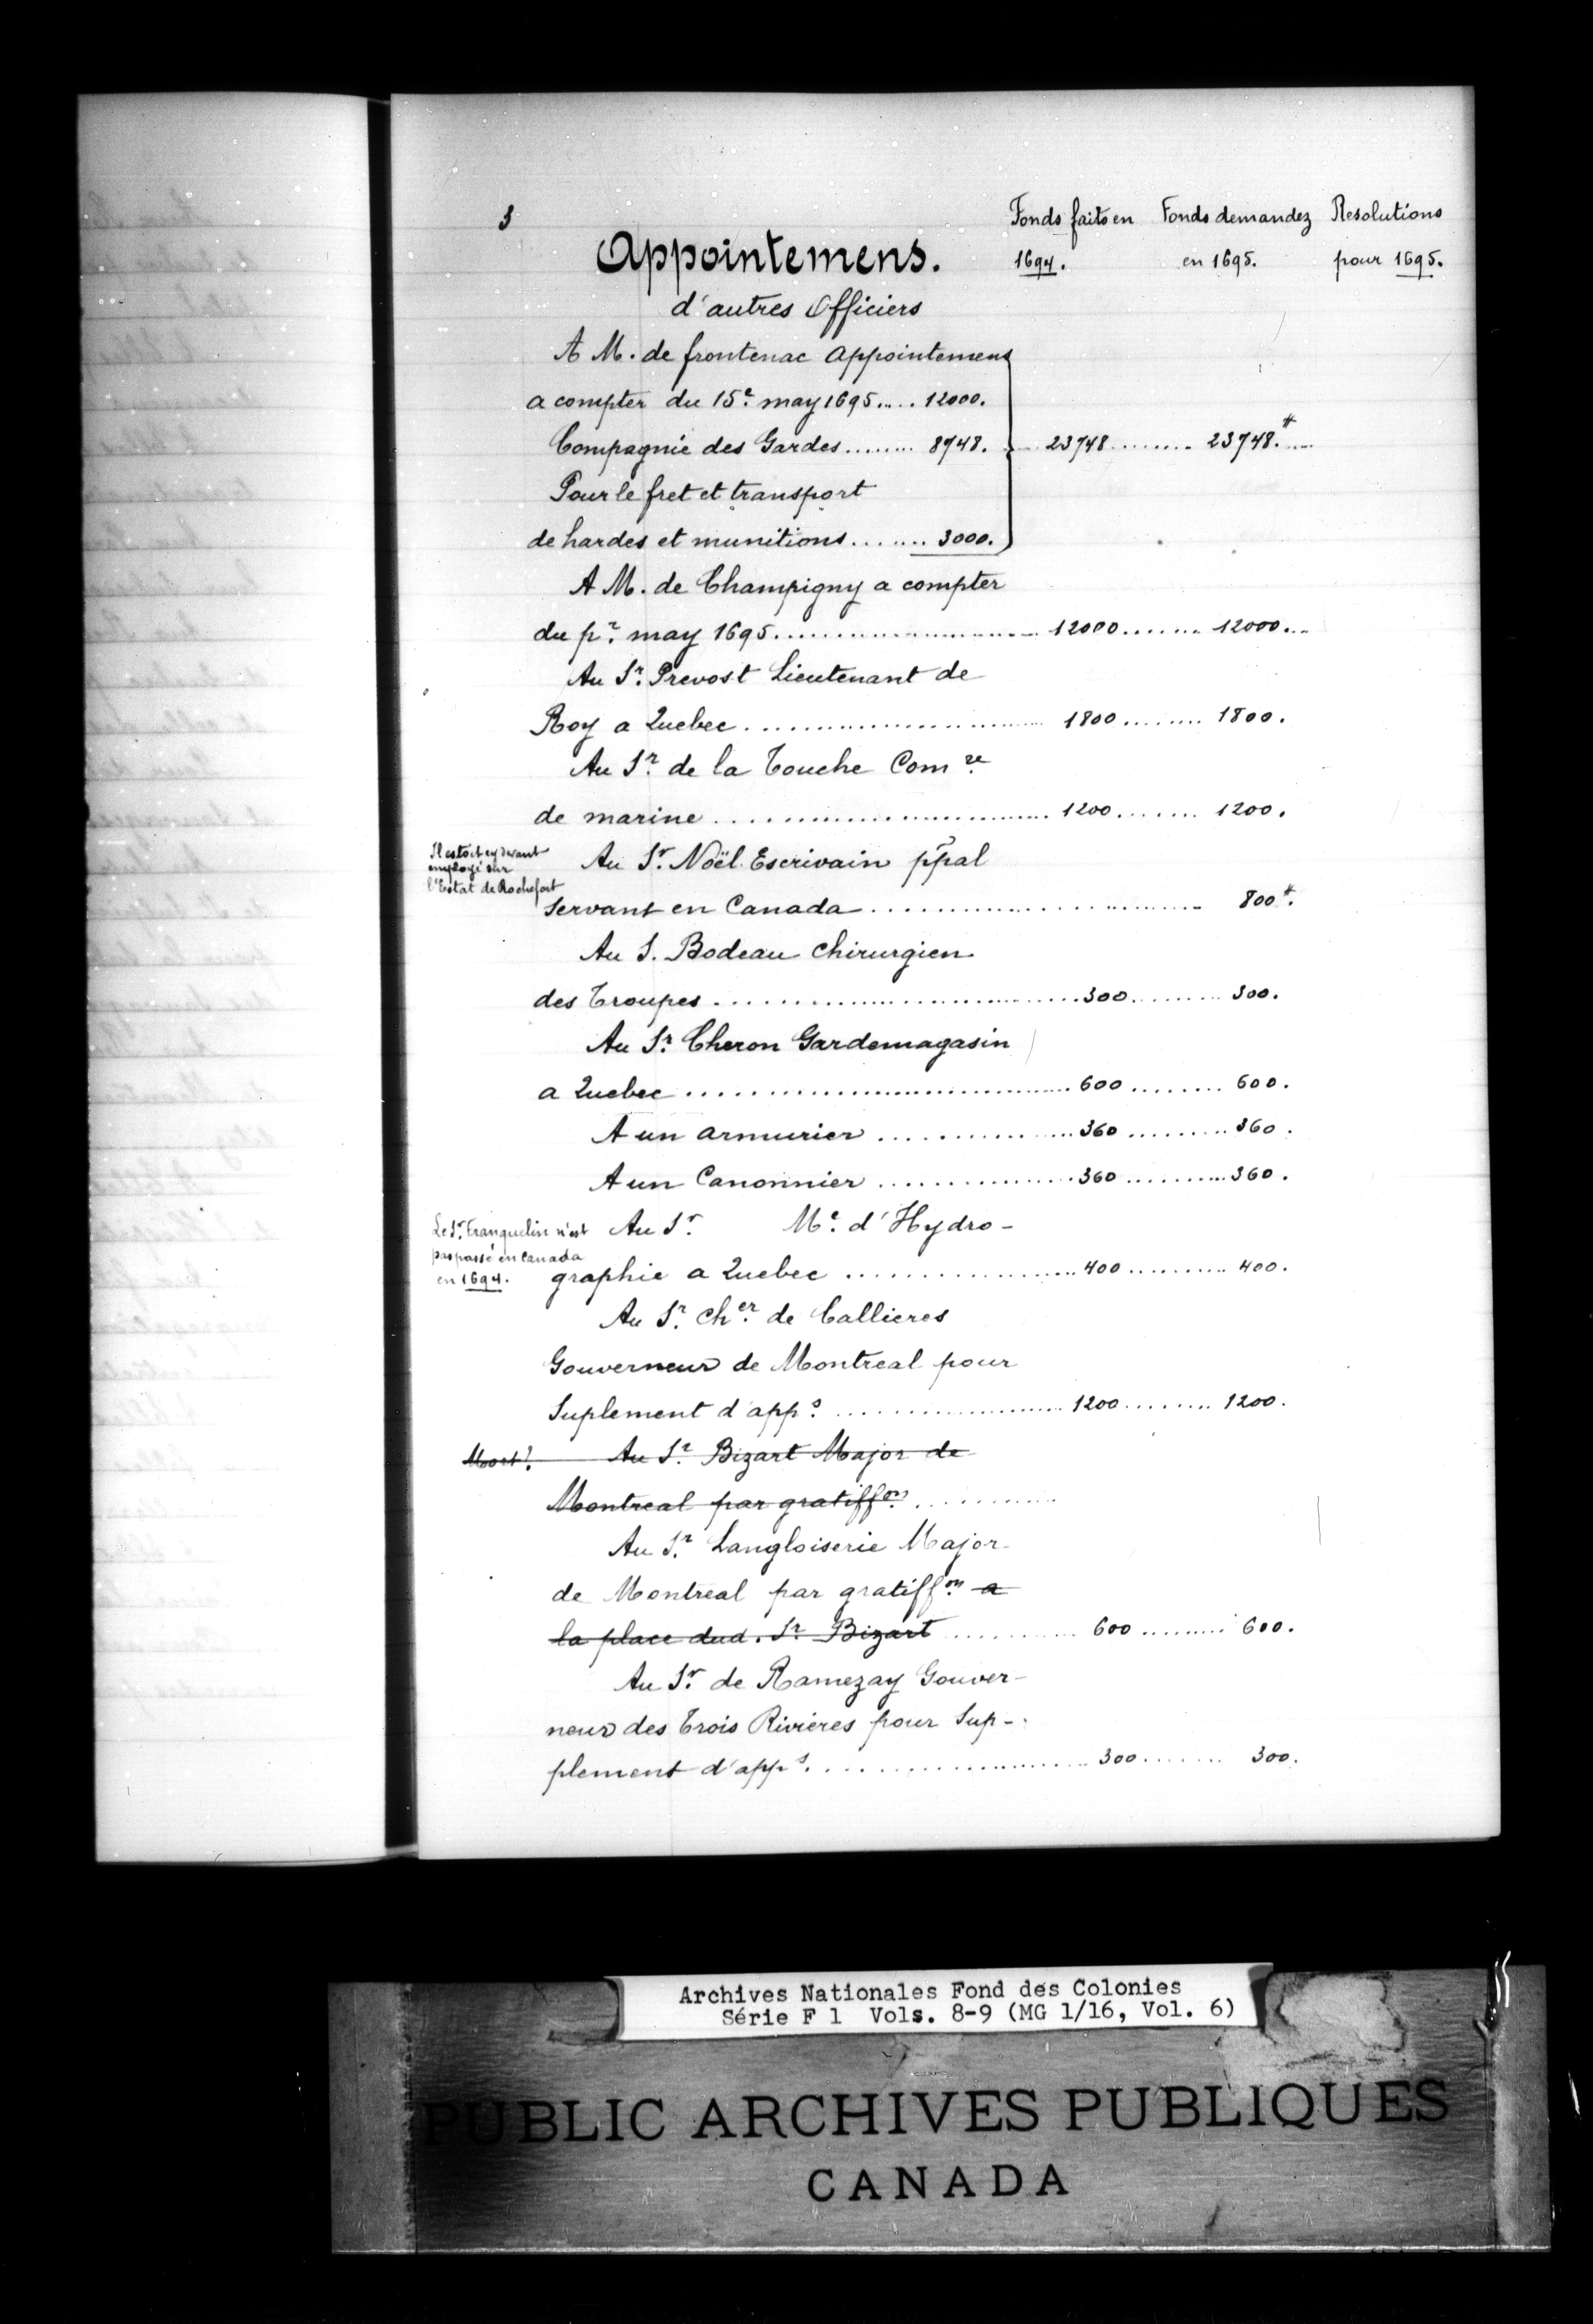 3
Fonds faits en Fonds demandez Resolutions
Appointemens. 1694. en 1695. pour 1695.
d'autres Officiers
A M. de frontenac Appointemens
a compter du 15e. may 1695..... 12000.
Compagnie des Gardes........ 8748. 23748......... 23748.#
Pour le fret et transport
de hardes et munitions....... 3000.
A M. de Champigny a compter
du pr. may 1695........................ 12000....... 12000...
Au Sr. Prevost Lieutenant de
Roy a Quebec........................ 1800........ 1800.
Au Sr. de la Touche Comre
de marine........................ 1200....... 1200.
Il estoit cy devant
employé sur
l'Estat de Rochefort
Au Sr. Noël Escrivain ppal
Servant en Canada........................ 800#.
Au S. Bodeau Chirurgien
des Troupes........................ 300......... 300.
Au Sr. Cheron Gardemagasin
a Quebec........................ 600........ 600.
A un armurier................ 360......... 360.
A un Canonnier................ 360......... 360.
Le Sr. Franquelin n'est
pas passé en Canada
en 1694.
Au Sr. Me. d'Hydro-
graphie a Quebec.................. 400.......... 400.
Au Sr. Cher. de Callieres
Gouverneur de Montreal pour
Suplement d'apps. .................. 1200........ 1200.
Mort. Au Sr. Bizart Major de
Montreal par gratiffon. ...........
Au Sr. Langloiserie Major
de Montreal par gratiffon. a
la place dud. Sr. Bizart ........... 600........ 600.
Au Sr. de Ramezay Gouver-
neur des Trois Rivieres pour Sup-
plement d'apps. .................. 300........ 300.
Archives Nationales Fond des Colonies
Série F 1 Vols. 8-9 (MG 1/16, Vol. 6)
PUBLIC ARCHIVES PUBLIQUES
CANADA